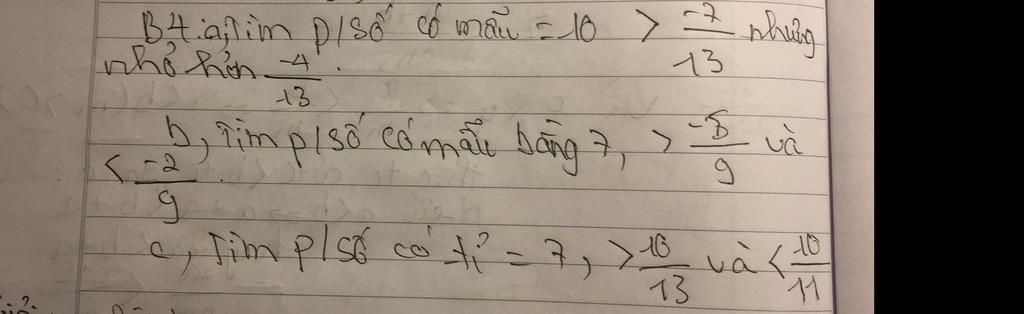 B4.a, Tìm p/số có mẫu = 10 > -7/13 nhưng
nhỏ hơn -4/13.
b, Tìm p/số có mẫu bằng 7, > -5/9 và
< -2/9
c, Tìm p/số có tỉ = 7, > 10/13 và < 10/11